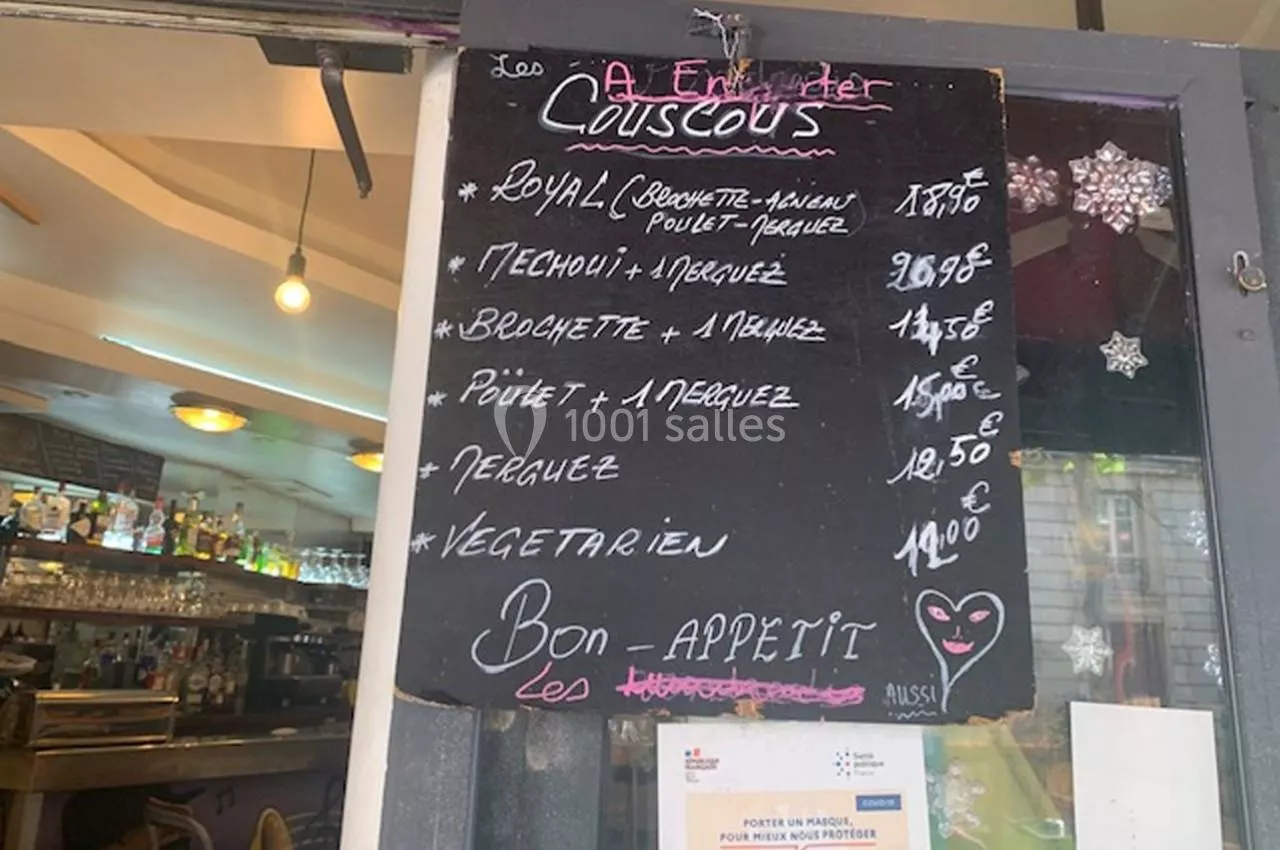 Les
A Emporter
Couscous
* ROYAL (BROCHETTE-AGNEAU 18,90€
POULET-MERGUEZ)
* MECHOUI + 1 MERGUEZ
* BROCHETTE + 1 MERGUEZ
* POÜLET + 1 MERGUEZ 15,00€
* MERGUEZ 12,50€
* VEGETARIEN
1001 salles
Bon - APPETIT
Les
AUSSI
RÉPUBLIQUE
FRANÇAISE
Santé
publique
France
COVID-19
PORTER UN MASQUE,
POUR MIEUX NOUS PROTÉGER